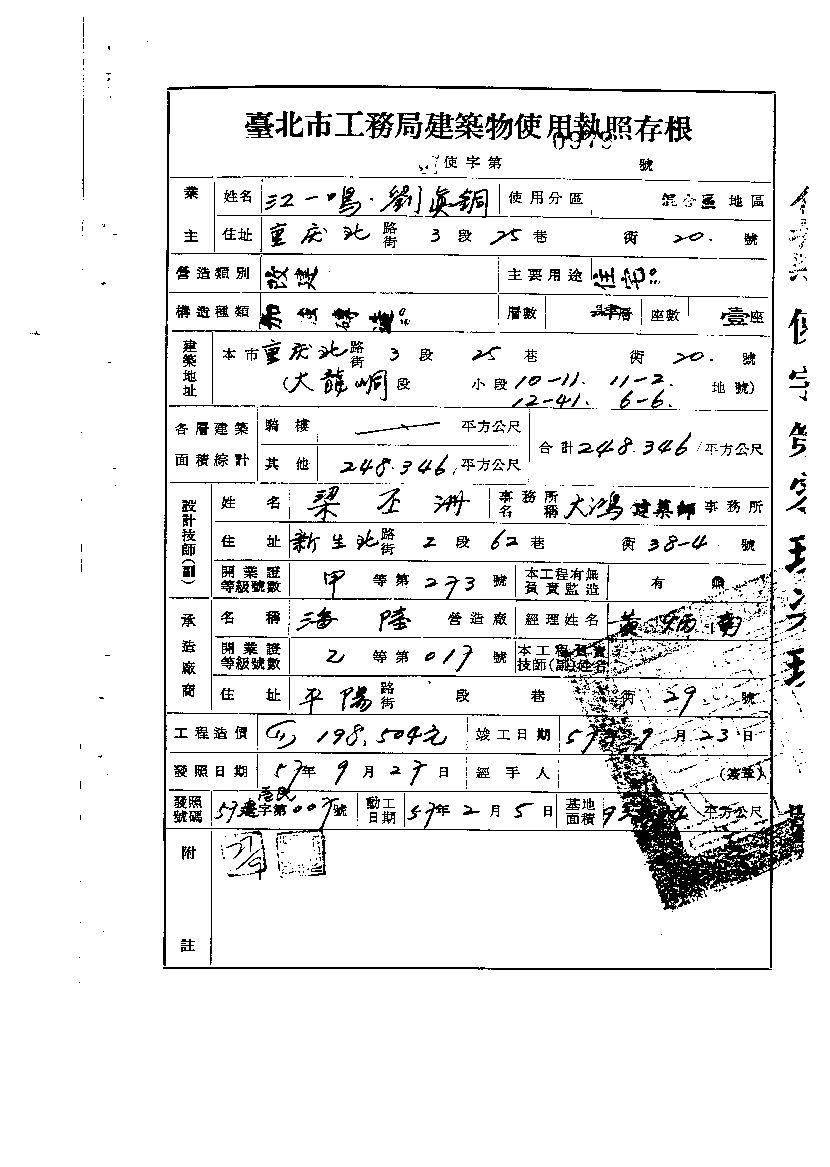 臺北市工務局建築物使用執照存根
使字第 0979 號
業主 姓名 江一鳴．劉眞銅 使用分區 混合區地區
住址 重庆北路街 3段 25巷 衖 20. 號
營造類別 改建 主要用途 住宅
構造種類 加强磚造 層數 層 座數 壹座
建築地址 本市重庆北路街 3段 25巷 衖 20. 號
(大龍峒段 小段 10-11. 11-2. 地號)
12-41. 6-6.
各層建築面積綜計 騎樓 平方公尺 合計248.346/平方公尺
其他 248.346/平方公尺
設計技師(副) 姓名 梁丕洲 事務所名稱 大鴻建築師事務所
住址 新生北路街 2段 62巷 衖 38-4 號
開業證等級號數 甲等第273號 本工程有無負責監造 有 無
承造廠商 名稱 海陸營造廠 經理姓名 黃炳南
開業證等級號數 乙等第017號 本工程負責技師(副)姓名
住址 平陽路街 段 巷 衖 29 號
工程造價 198,504元 竣工日期 57年9月23日
發照日期 57年9月27日 經手人 (簽章)
發照號碼 57建 字第007號 動工日期 57年2月5日 基地面積 平方公尺
附註